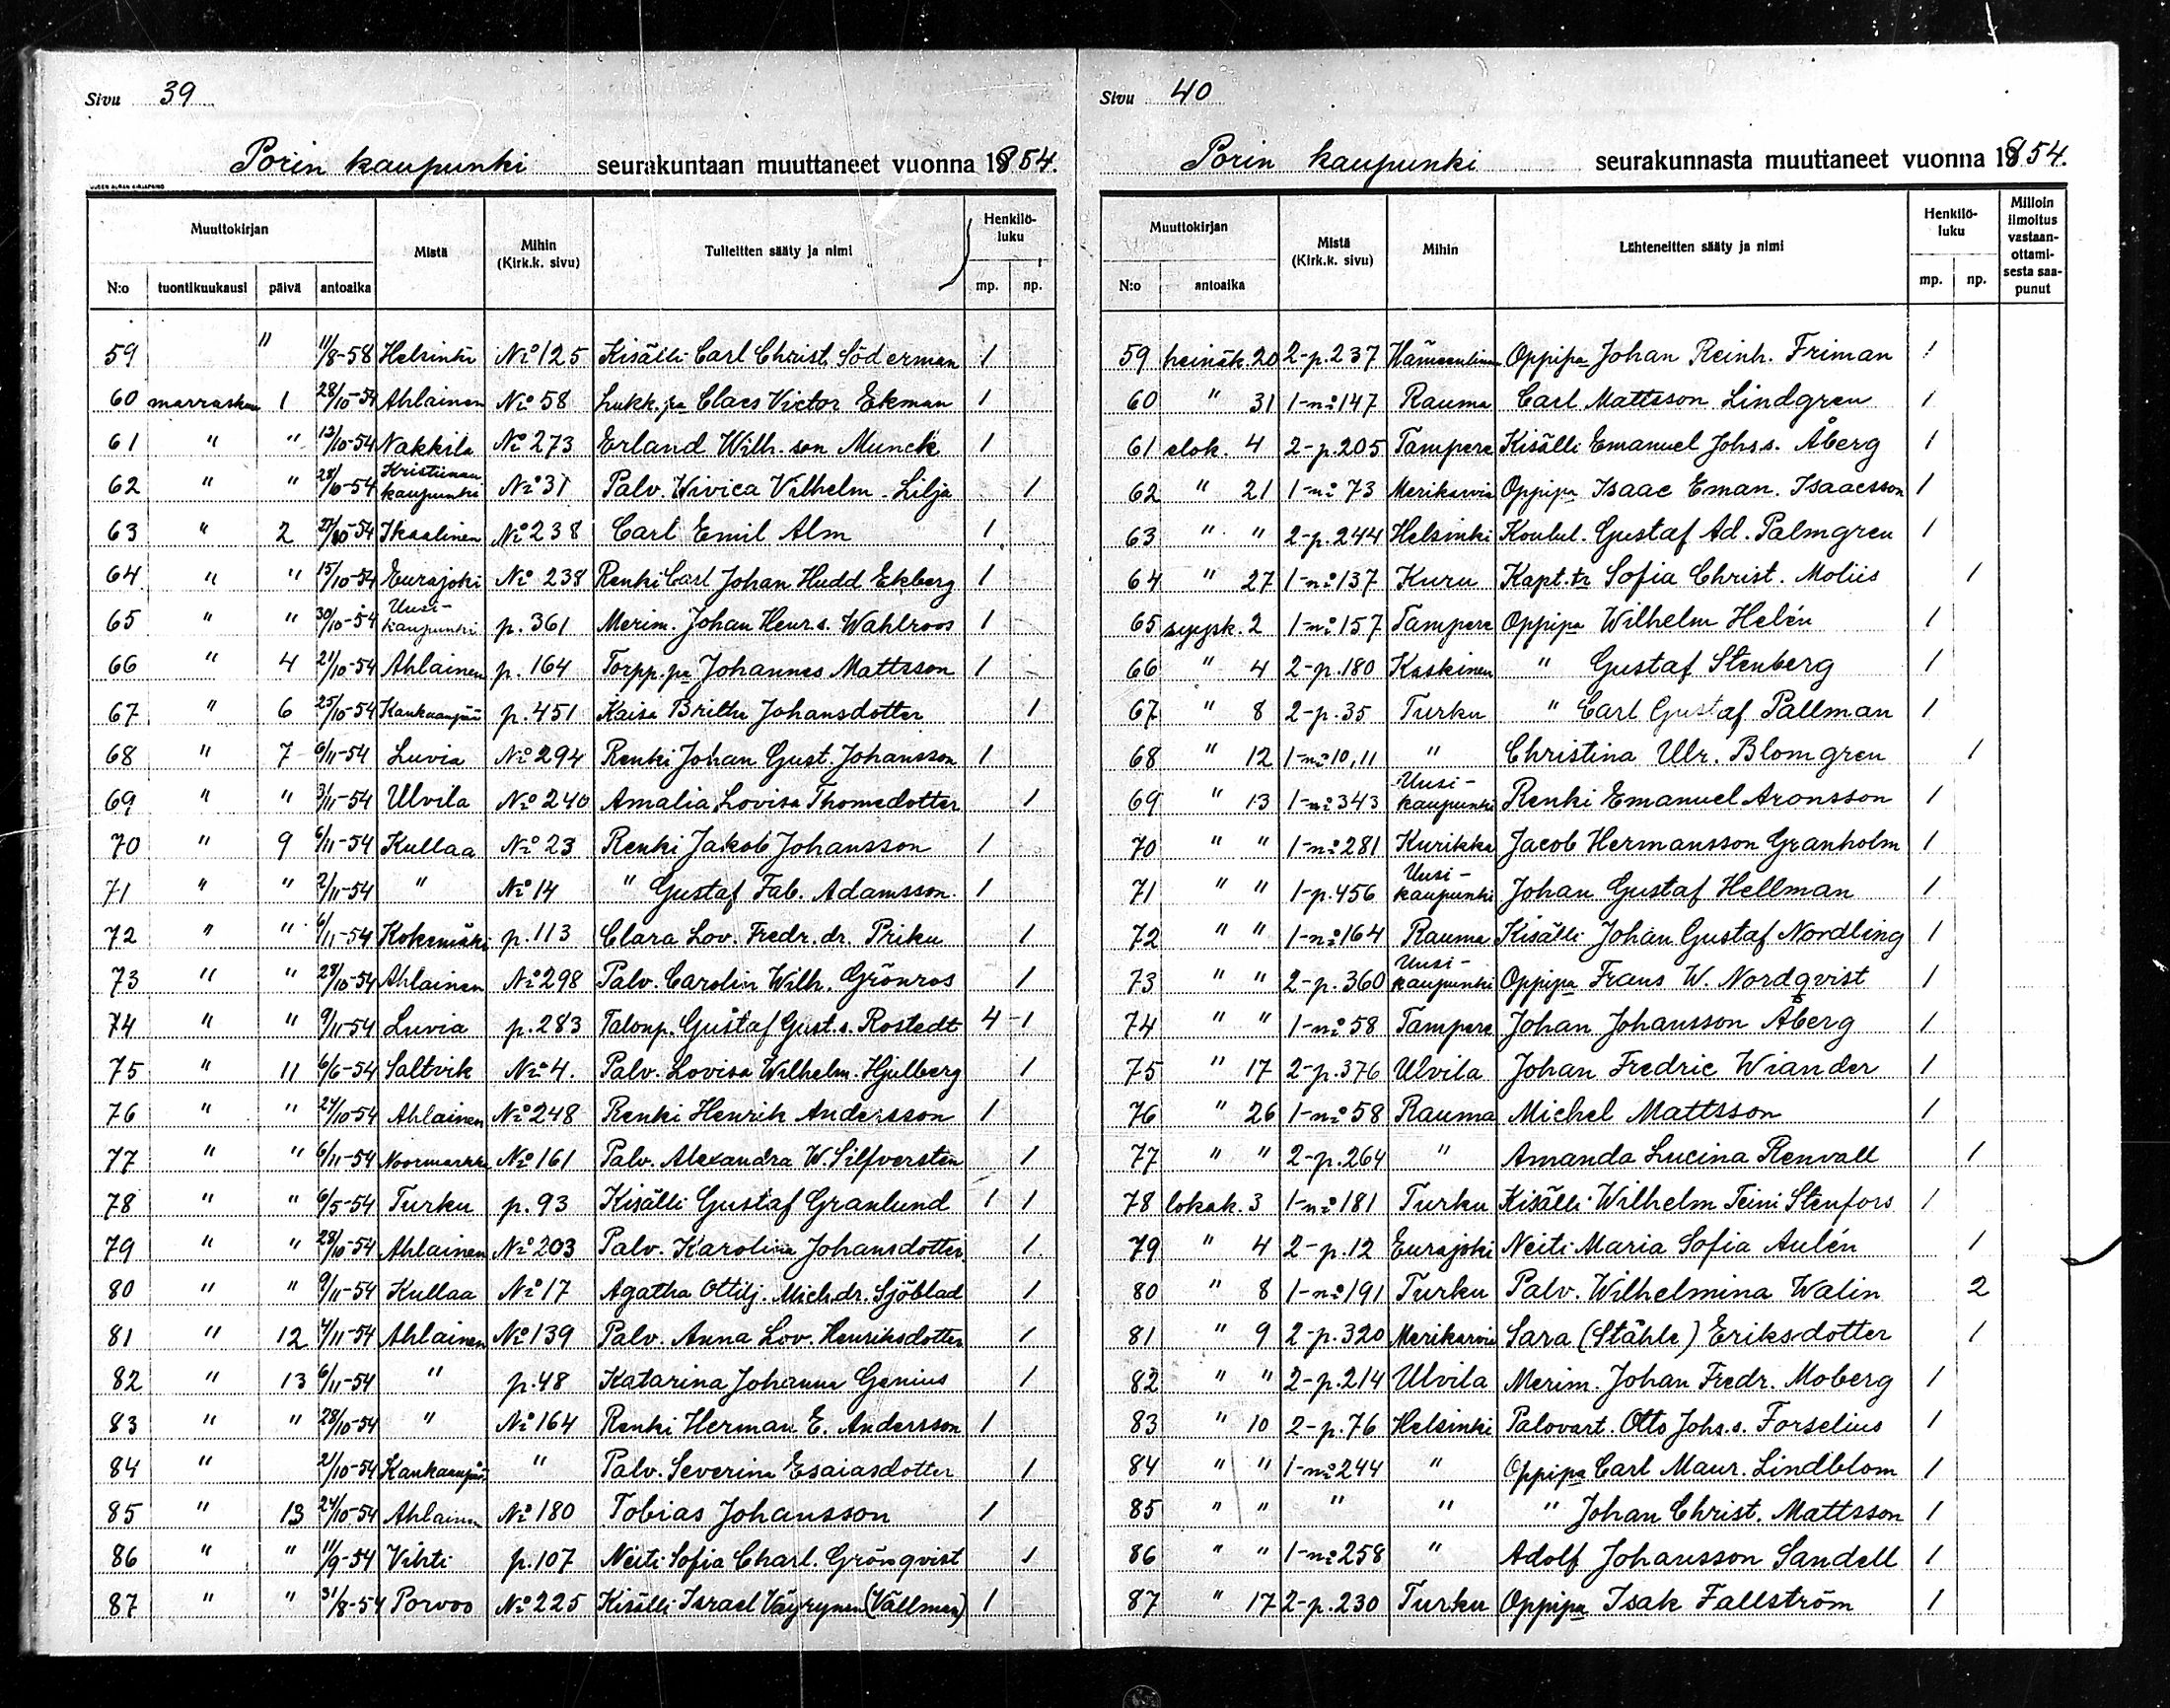 Sivu 39
Porin kaupunki seurakuntaan muuttaneet vuonna 1854.
UUDEN AURAN KIRJAPAINO
Muuttokirjan Mistä Mihin (Kirk.k. sivu) Tulleitten sääty ja nimi Henkilö-luku
N:o tuontikuukausi päivä antoaika mp. np.
59 " 11/8-58 Helsinki No 125 Kisälli Carl Christ. Söderman 1
60 marraskuu 1 28/10-54 Ahlainen No 58 Lukk.pa Claes Victor Ekman 1
61 " " 13/10-54 Nakkila No 273 Erland Wilh. son Munck 1
62 " " 28/10-54 Kristiinan kaupunki No 31 Palv. Wivica Vilhelm. Lilja 1
63 " 2 27/10-54 Ikaalinen No 238 Carl Emil Alm 1
64 " " 15/10-54 Eurajoki No 238 Renki Carl Johan Hudd Ekberg 1
65 " " 30/10-54 Uusi-kaupunki p. 361 Merim. Johan Henr.s. Wahlroos 1
66 " 4 21/10-54 Ahlainen p. 164 Torpp.pa Johannes Mattsson 1
67 " 6 25/10-54 Kankaanpää p. 451 Kaisa Britha Johansdotter 1
68 " 7 6/11-54 Luvia No 294 Renki Johan Gust. Johansson 1
69 " " 3/11-54 Ulvila No 240 Amalia Lovisa Thomedotter 1
70 " 9 6/11-54 Kullaa No 23 Renki Jakob Johansson 1
71 " " 2/11-54 " No 14 " Gustaf Fab. Adamsson 1
72 " " 6/11-54 Kokemäki p. 113 Clara Lov. Fredr. dr. Priku 1
73 " " 28/10-54 Ahlainen No 298 Palv. Carolin Wilh. Grönros 1
74 " " 9/11-54 Luvia p. 283 Talonp. Gustaf Gust.s. Rostedt 4 1
75 " 11 6/6-54 Saltvik No 4. Palv. Lovisa Wilhelm. Hjulberg 1
76 " " 24/10-54 Ahlainen No 248 Renki Henrik Andersson 1
77 " " 6/11-54 Noormarkku No 161 Palv. Alexandra W. Silfversten 1
78 " " 6/5-54 Turku p. 93 Kisälli Gustaf Granlund 1 1
79 " " 28/10-54 Ahlainen No 203 Palv. Karolina Johansdotter 1
80 " " 9/11-54 Kullaa No 17 Agatha Ottilj. Mich.dr. Sjöblad 1
81 " 12 4/11-54 Ahlainen No 139 Palv. Anna Lov. Henriksdotter 1
82 " 13 6/11-54 " p. 48 Katarina Johanna Genius 1
83 " " 28/10-54 " No 164 Renki Herman E. Andersson 1
84 " 21/10-54 Kankaanpää " Palv. Severina Esaiasdotter 1
85 " 13 24/10-54 Ahlainen No 180 Tobias Johansson 1
86 " " 11/9-54 Vihti p. 107 Neiti Sofia Charl. Grönqvist 1
87 " " 31/8-54 Porvoo No 225 Kisälli Israel Väyrynen (Vällman) 1
Sivu 40
Porin kaupunki seurakunnasta muuttaneet vuonna 1854.
Muuttokirjan Mistä (Kirk.k. sivu) Mihin Lähteneitten sääty ja nimi Henkilö-luku Milloin ilmoitus vastaan-ottami-sesta saa-punut
N:o antoaika mp. np.
59 heinäk. 20 2-p. 237 Hämeenlinna Oppipa Johan Reinh. Friman 1
60 " 31 1-no 147 Rauma Carl Mattsson Lindgren 1
61 elok. 4 2-p. 205 Tampere Kisälli Emanuel Johs.s. Åberg 1
62 " 21 1-no 73 Merikarvia Oppipa Isaac Eman. Isaacsson 1
63 " " 2-p. 244 Helsinki Koulul. Gustaf Ad. Palmgren 1
64 " 27 1-no 137 Kuru Kapt.tr Sofia Christ. Moliis 1
65 syysk. 2 1-no 157 Tampere Oppipa Wilhelm Helén 1
66 " 4 2-p. 180 Kaskinen " Gustaf Stenberg 1
67 " 8 2-p. 35 Turku " Carl Gustaf Pallman 1
68 " 12 1-no 10, 11 " Christina Ulr. Blomgren 1
69 " 13 1-no 343 Uusi-kaupunki Renki Emanuel Aronsson 1
70 " " 1-no 281 Kurikka Jacob Hermansson Granholm 1
71 " " 1-p. 456 Uusi-kaupunki Johan Gustaf Hellman 1
72 " " 1-no 164 Rauma Kisälli Johan Gustaf Nordling 1
73 " " 2-p. 360 Uusi-kaupunki Oppipa Frans W. Nordqvist 1
74 " " 1-no 58 Tampere Johan Johansson Åberg 1
75 " 17 2-p. 376 Ulvila Johan Fredric Wiander 1
76 " 26 1-no 58 Rauma Michel Mattsson 1
77 " " 2-p. 264 " Amanda Lucina Renvall 1
78 lokak. 3 1-no 181 Turku Kisälli Wilhelm Teini Stenfors 1
79 " 4 2-p. 12 Eurajoki Neiti Maria Sofia Aulén 1
80 " 8 1-no 191 Turku Palv. Wilhelmina Walin 2
81 " 9 2-p. 320 Merikarvia Sara (Ståhle) Eriksdotter 1
82 " " 2-p. 214 Ulvila Merim. Johan Fredr. Moberg 1
83 " 10 2-p. 76 Helsinki Palovart. Otto Johs.s. Forselius 1
84 " " 1-no 244 " Oppipa Carl Maur. Lindblom 1
85 " " " " " Johan Christ. Mattsson 1
86 " " 1-no 258 " Adolf Johansson Sandell 1
87 " 17 2-p. 230 Turku Oppipa Isak Fallström 1